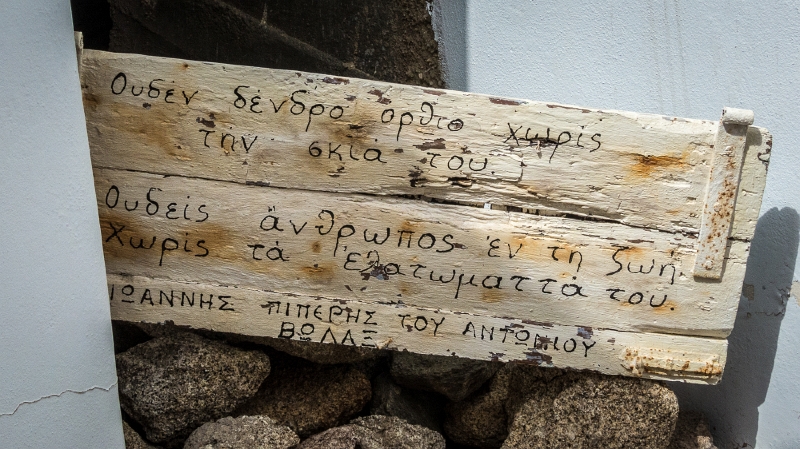 Ουδέν δένδρο ορθτο χωρίς
την σκιά του.
Ουδείς άνθρωπος έν τη ζωή.
Χωρίς τά έλατωματτά του.
ΙΩΑΝΝΗΣ ΠΙΠΕΡΗΣ ΤΟΥ ΑΝΤΩΝΙΟΥ
ΒΩΛΑΞ